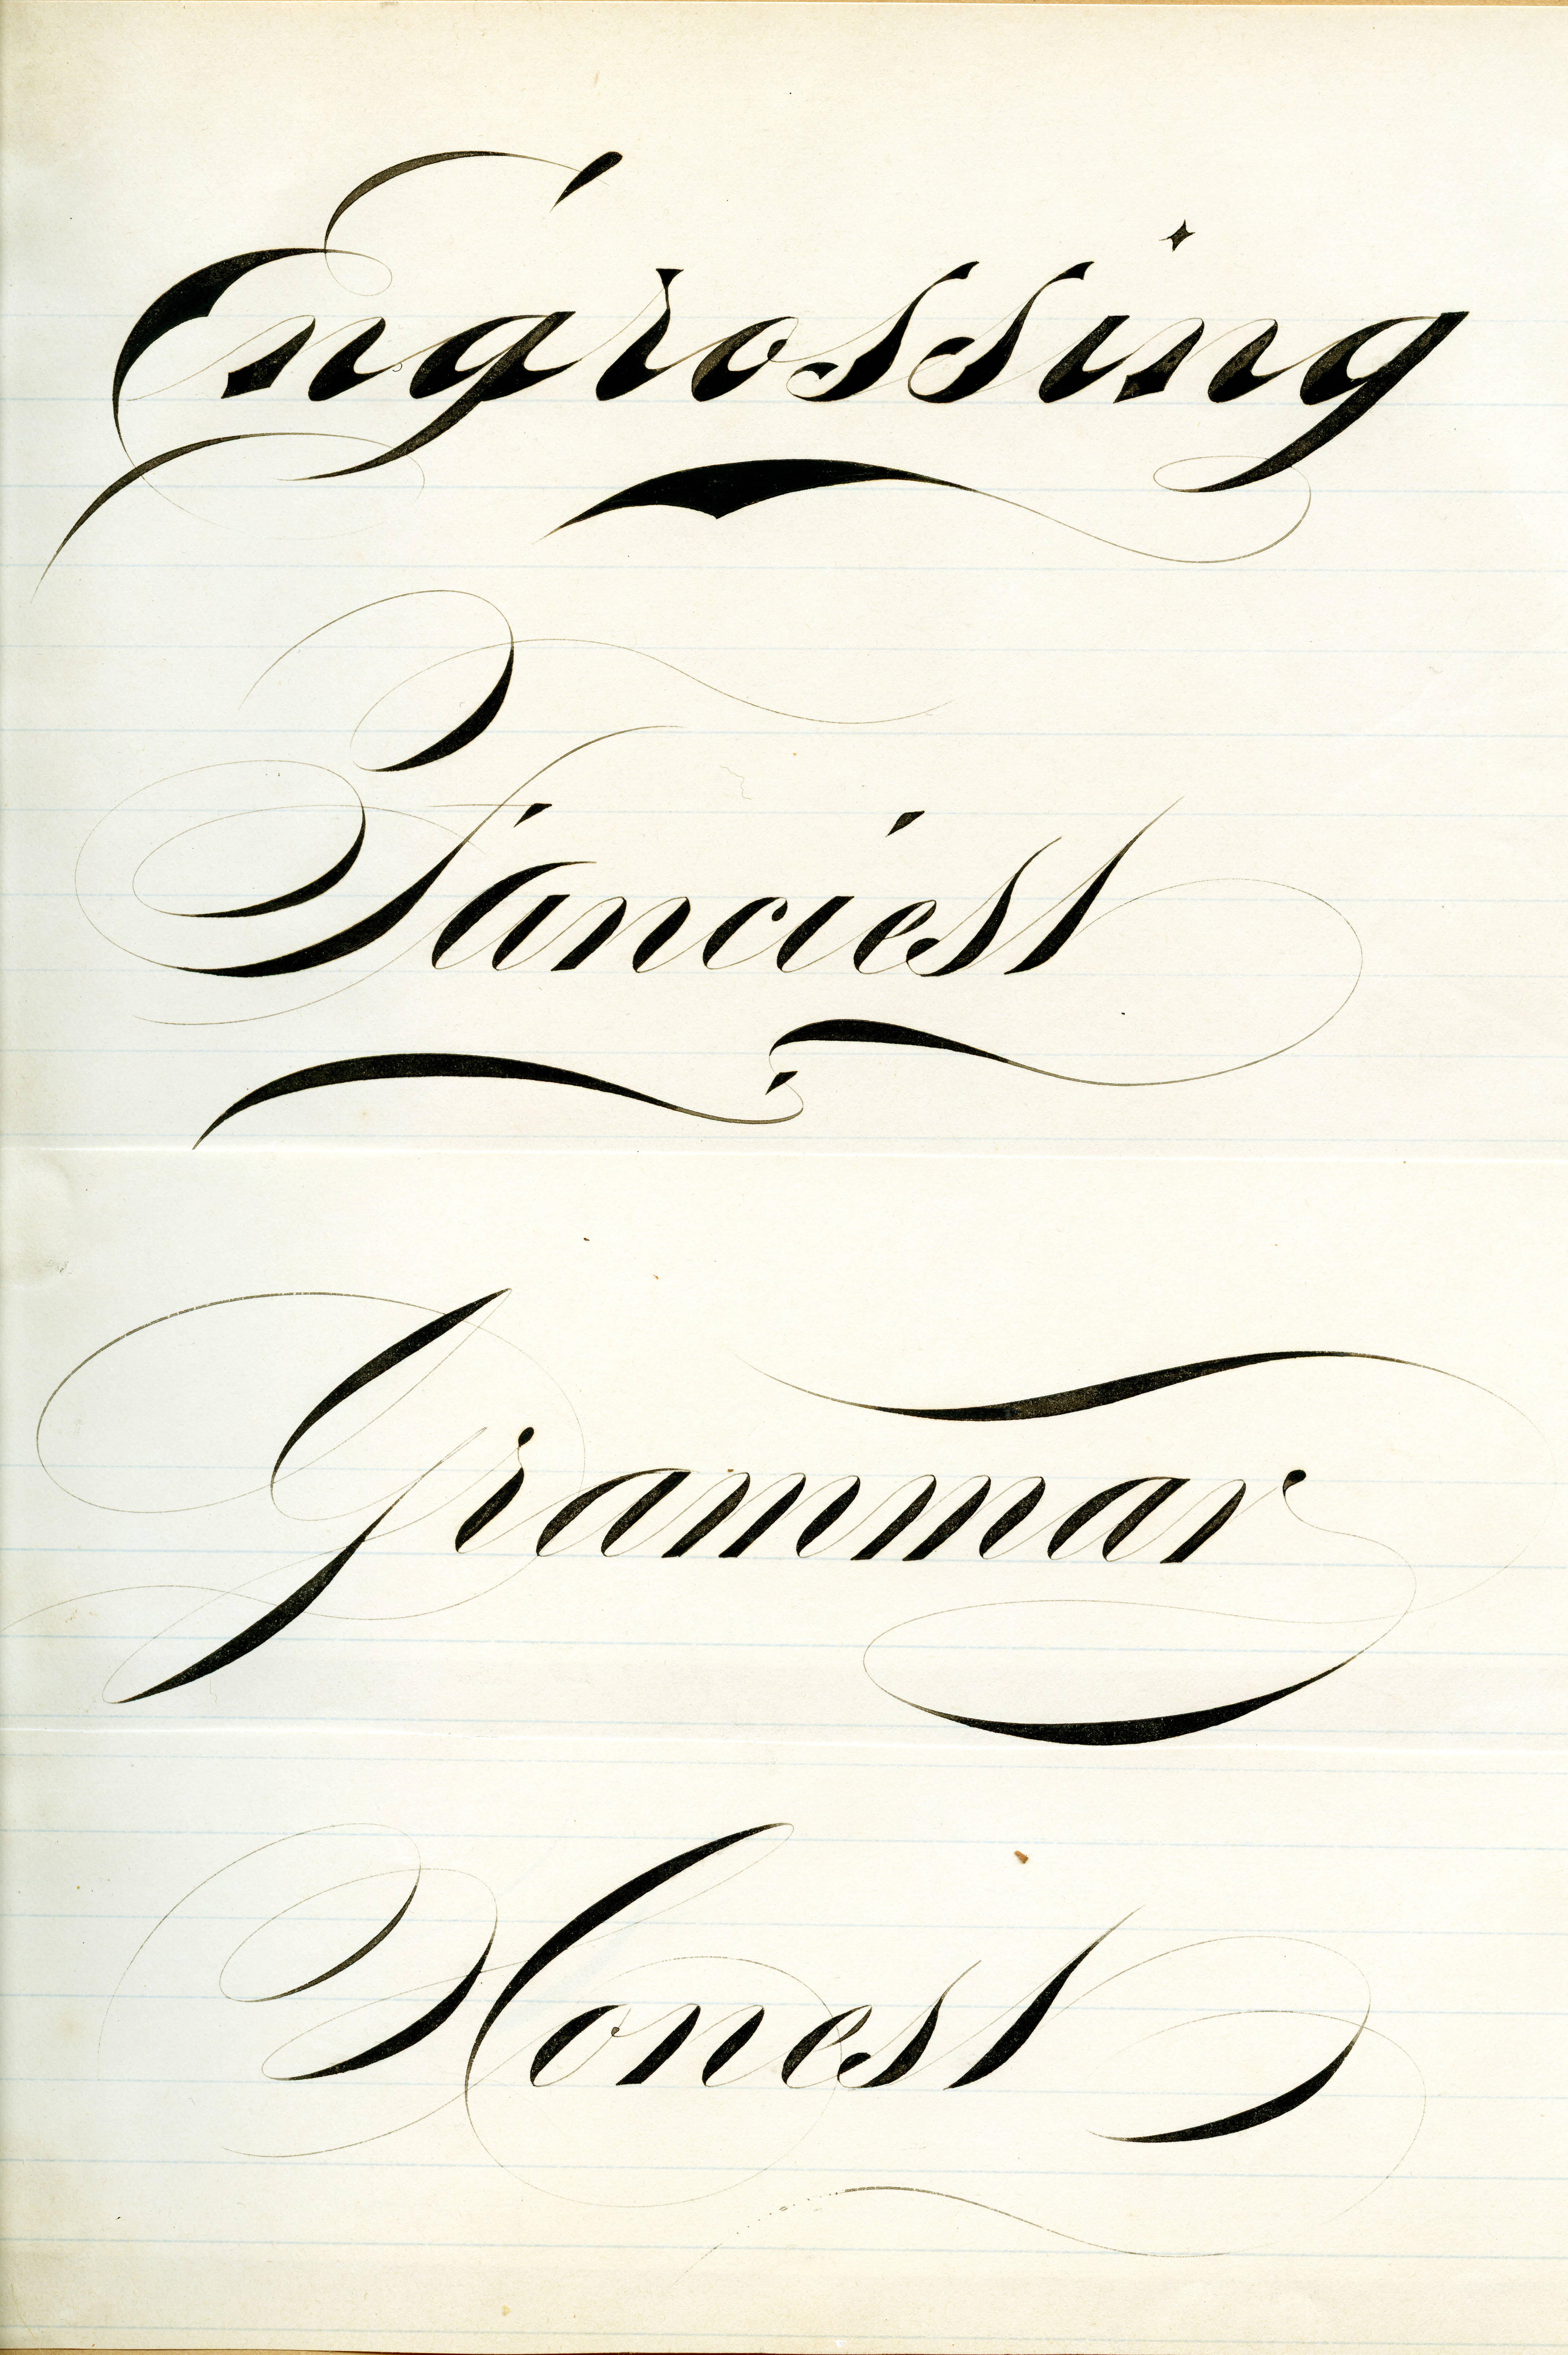 Engrossing
Fanciest
Grammar
Honest